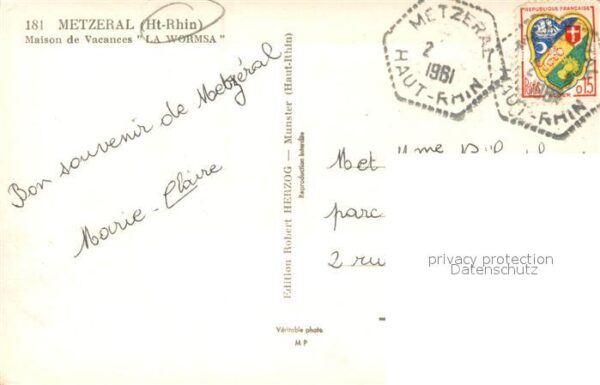 181 METZERAL (Ht-Rhin)
Maison de Vacances "LA WORMSA"
Bon souvenir de Metzéral
Marie-Claire
Edition Robert HERZOG — Munster (Haut-Rhin)
Reproduction interdite
Véritable photo
M P
METZERAL
2
1961
HAUT-RHIN
REPUBLIQUE FRANÇAISE
0,15
HAUT-RHIN
Met
parc
2 ru
privacy protection
Datenschutz